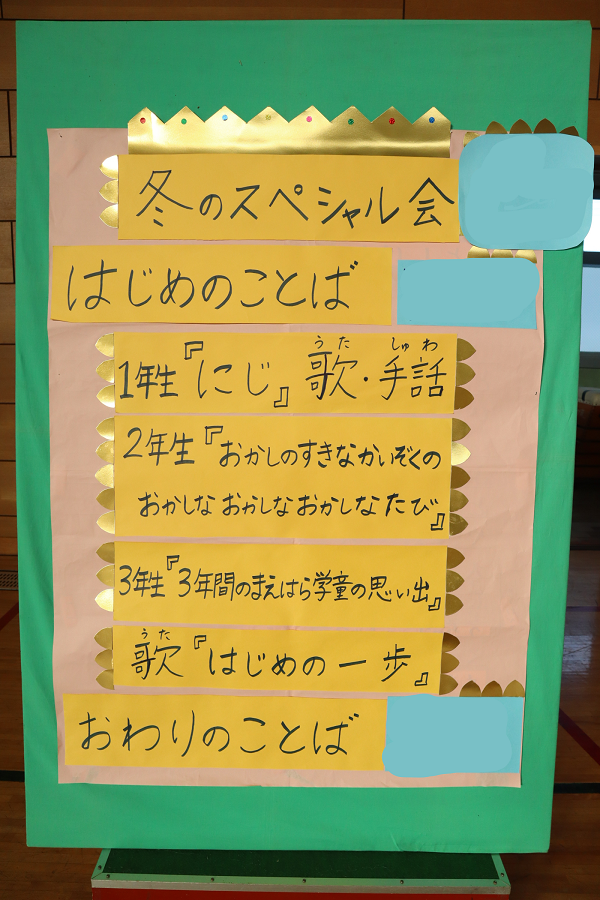 冬のスペシャル会
はじめのことば
うた しゅわ
1年生『にじ』歌・手話
2年生『おかしのすきなかいぞくの
おかしな おかしな おかしなたび』
3年生『3年間のまえはら学童の思い出』
うた
歌『はじめの一歩』
おわりのことば